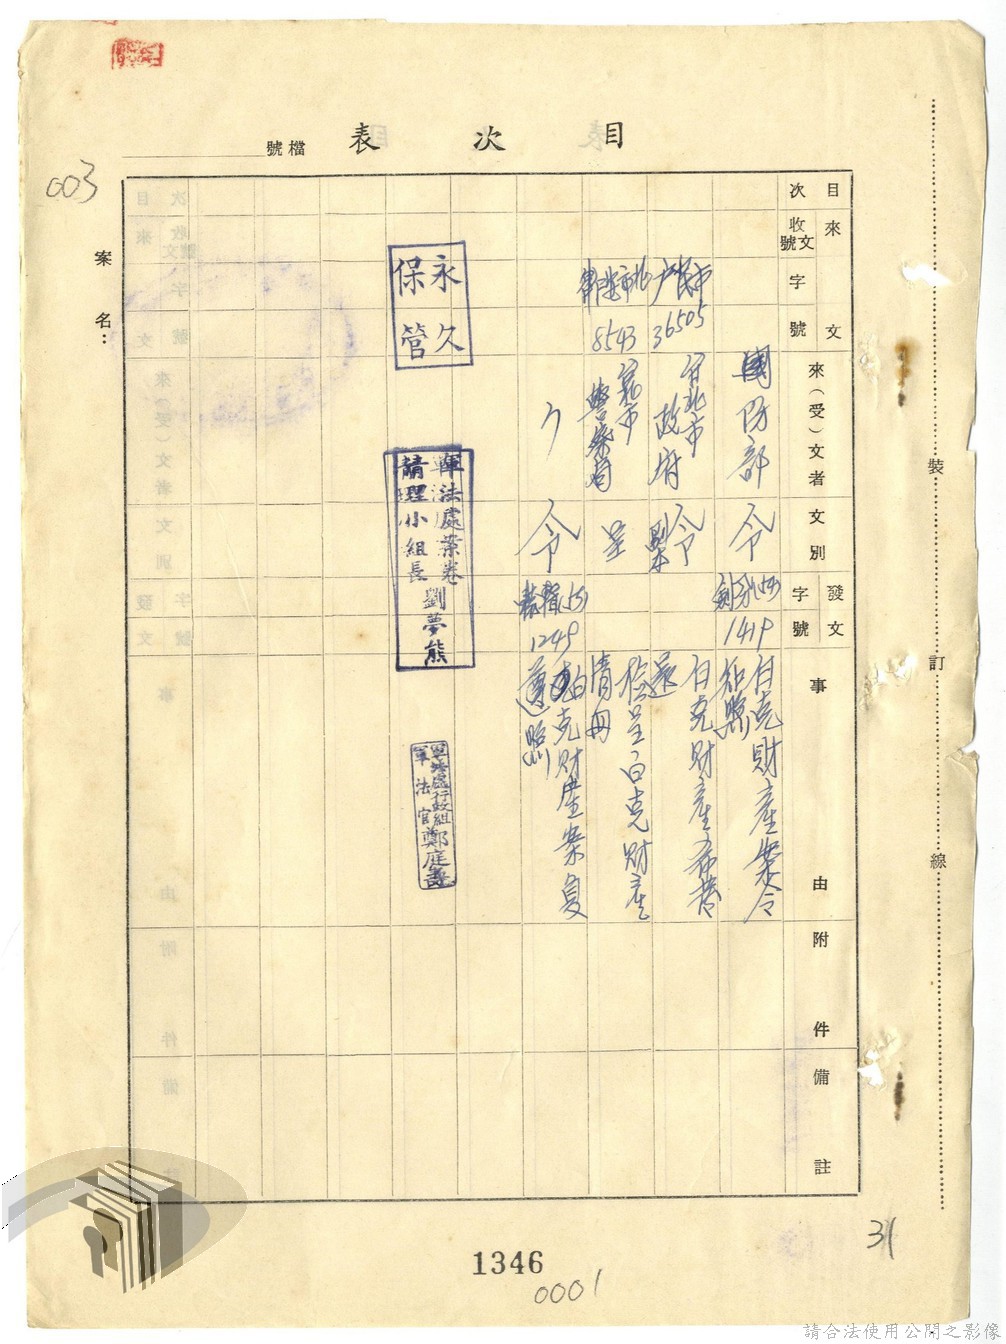 目次表
檔號
003
案名：
目次
來文
收文號
字號
來（受）文者
文別
發文
字號
事由
附件
備註
國防部
令
1419
白克財產案令
知照
市民戶
36505
台北市
政府
令
白克財產希替
還
8543
台北市
警察局
呈
檢呈白克財產
清冊
令
1249
白克財產案復
遵照
永久
保管
軍法處案卷
清理小組長 劉夢熊
軍法處行政組
軍法官 鄭庭壽
裝
訂
線
31
1346
0001
請合法使用公開之影像